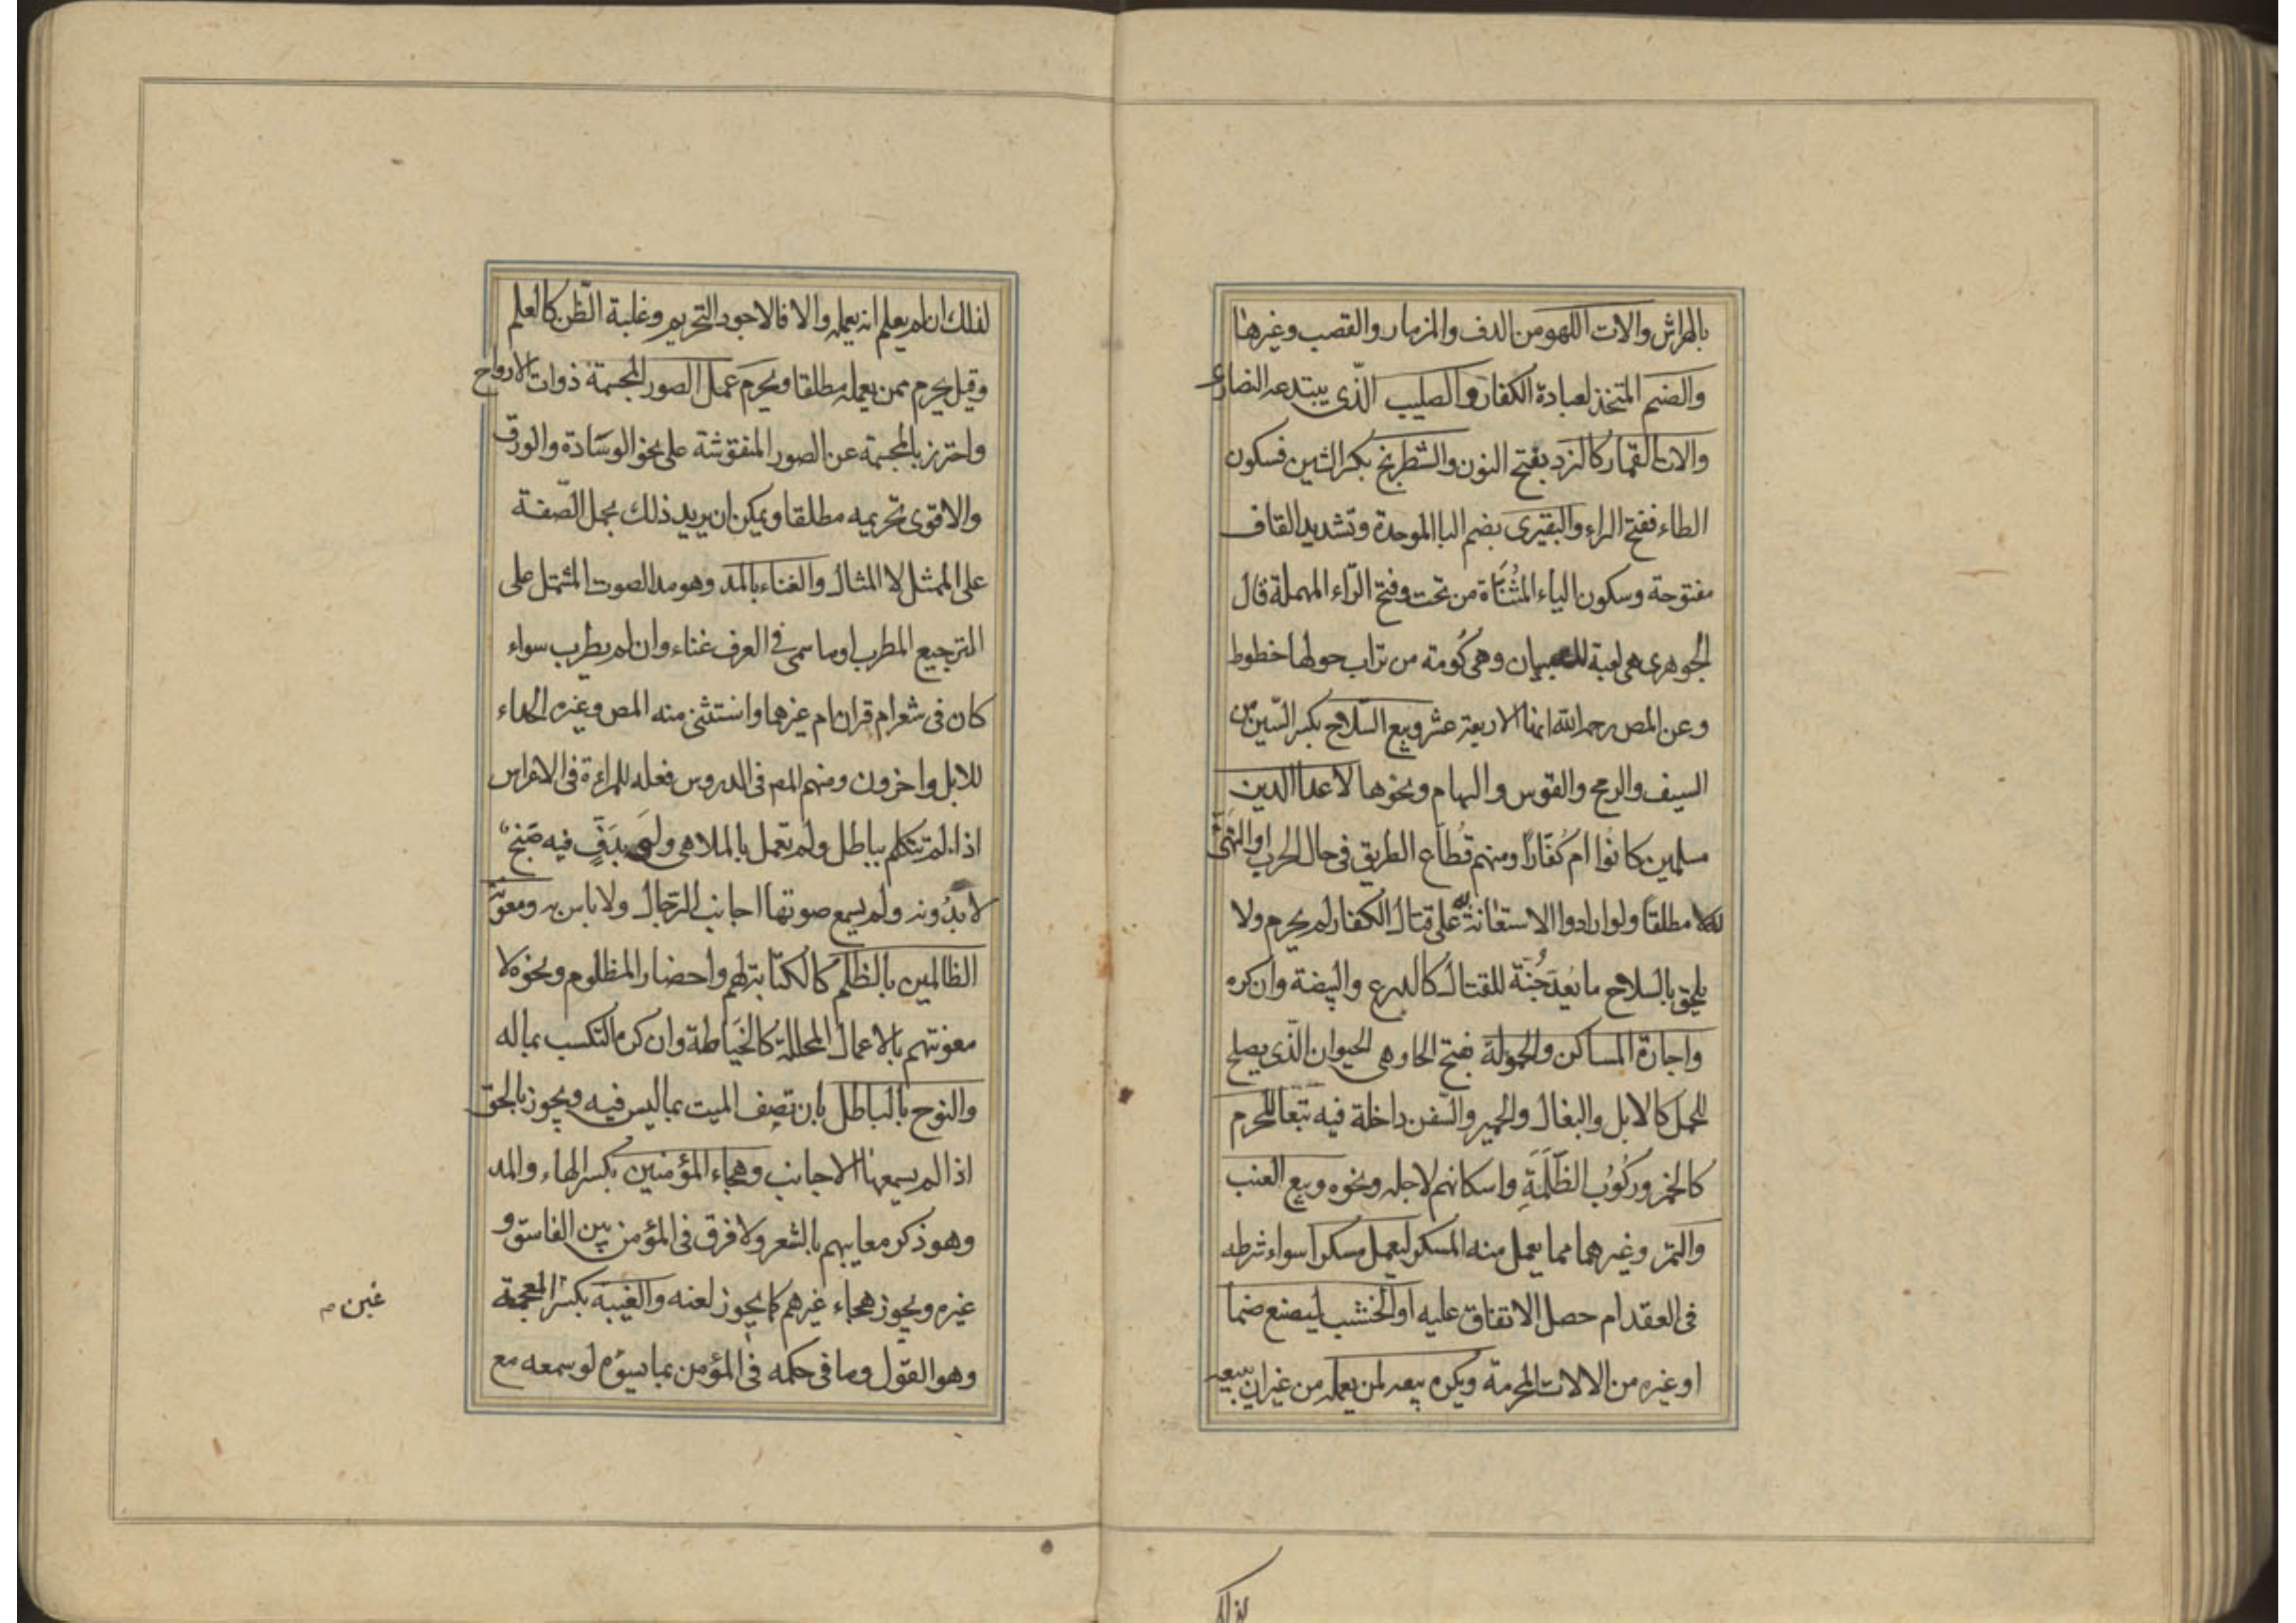 بالهراش والات اللهو من الدف والمزمار والقصب وغيرها
والصنم المتخذ لعبادة الكفار والصليب الذّى يبتدعه النصارى
والات القمار كالنرد بفتح النون والشطرنج بكسر الشين فسكون
الطاء ففتح الراء والبقيرى بضم البا الموحدة وتشديد القاف
مفتوحة وسكون الياء المثنّاة من تحت وفتح الرّاء المهملة قال
الجوهرى هى لعبة للصبيان وهى كُومة من تراب حولها خطوط
وعن المص رحمه الله انها الاربعة عشر وبيع السّلاح بكسر السّين من
السيف والرمح والقوس والسهام ونحوها لاعدا الدين
مسلمين كانوا ام كُفّارًا ومنهم قطّاع الطريق فى حال الحرب او التهيّؤ
له لا مطلقًا ولو ارادوا الاستعانة به على قتال الكفار لم يحرم ولا
يلحق بالسلاح ما يُعدّ جُنّة للقتال كالدرع والبيضة وان كره
واجارة المساكن والحمولة بفتح الحا وهى الحيوان الذّى يصلح
للحمل كالابل والبغال والحمير والسّفن داخلة فيه تبعا للمحرم
كالخمز وركُوُب الظّلَمَةِ واسكانهم لاجله ونحوه وبيع العنب
والتمر وغيرهما مما يعمل منه المسكر ليعمل مسكرا سواء شرطه
فى العقد ام حصل الاتفاق عليه او الخشب ليصنع صنما
او غيره من الالات المحرمة ويكره بيعه لمن يعمله من غير ان يبيعه
لذلك
لذلك ان لم يعلم انه يعمله والا فالاجود التحريم وغلبة الظّن كالعلم
وقيل يحرم ممن يعمله مطلقا ويحرم عمل الصور المجسمة ذوات الارواح
واحترز بالمجسمة عن الصور المنقوشة على نحو الوسادة والورق
والاقوى تحريمه مطلقا ويمكن ان يريد ذلك بجعل الصّفة
على الممثل لا المثال والغناء بالمد وهو مد الصوت المشتمل على
الترجيع المطرب او ما سمى فى العرف غناء وان لم يطرب سواء
كان فى شعر ام قران ام غيرهما واستثنى منه المص وغيره الحداء
للابل واخرون ومنهم المص فى الدروس فعله للمراءة فى الاعراس
اذا لم تتكلم بباطل ولم تعمل بالملاهى ولو بدفٍّ فيه صَنج
لا بدُونه ولم يسمع صوتها اجانب الرّجال ولا باس به ومعونة
الظالمين بالظلم كالكتابة لهم واحضار المظلوم ونحوه لا
معونتهم بالاعمال المحللة كالخَياطة وان كره التكسب بماله
والنوح بالباطل بان تصف الميت بما ليس فيه ويجوز بالحق
اذا لم يسمعها الاجانب وهجاء المؤمنين بكسر الهاء والمد
وهو ذكر معايبهم بالشعر ولا فرق فى المؤمن بين الفاسق و
غيره ويجوز هجاء غيرهم كما يجوز لعنه والغيبة بكسر المعجمة
وهو القول وما فى حكمه فى المؤمن بما يسوءه لو سمعه مع
غين م